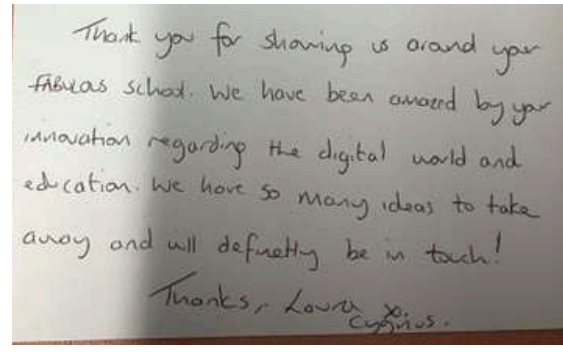 Thank you for showing us around your
FABULAS school. We have been amazed by your
innovation regarding the digital world and
education. We have so many ideas to take
away and will definetly be in touch!
Thanks, Laura x.
Cygnus.